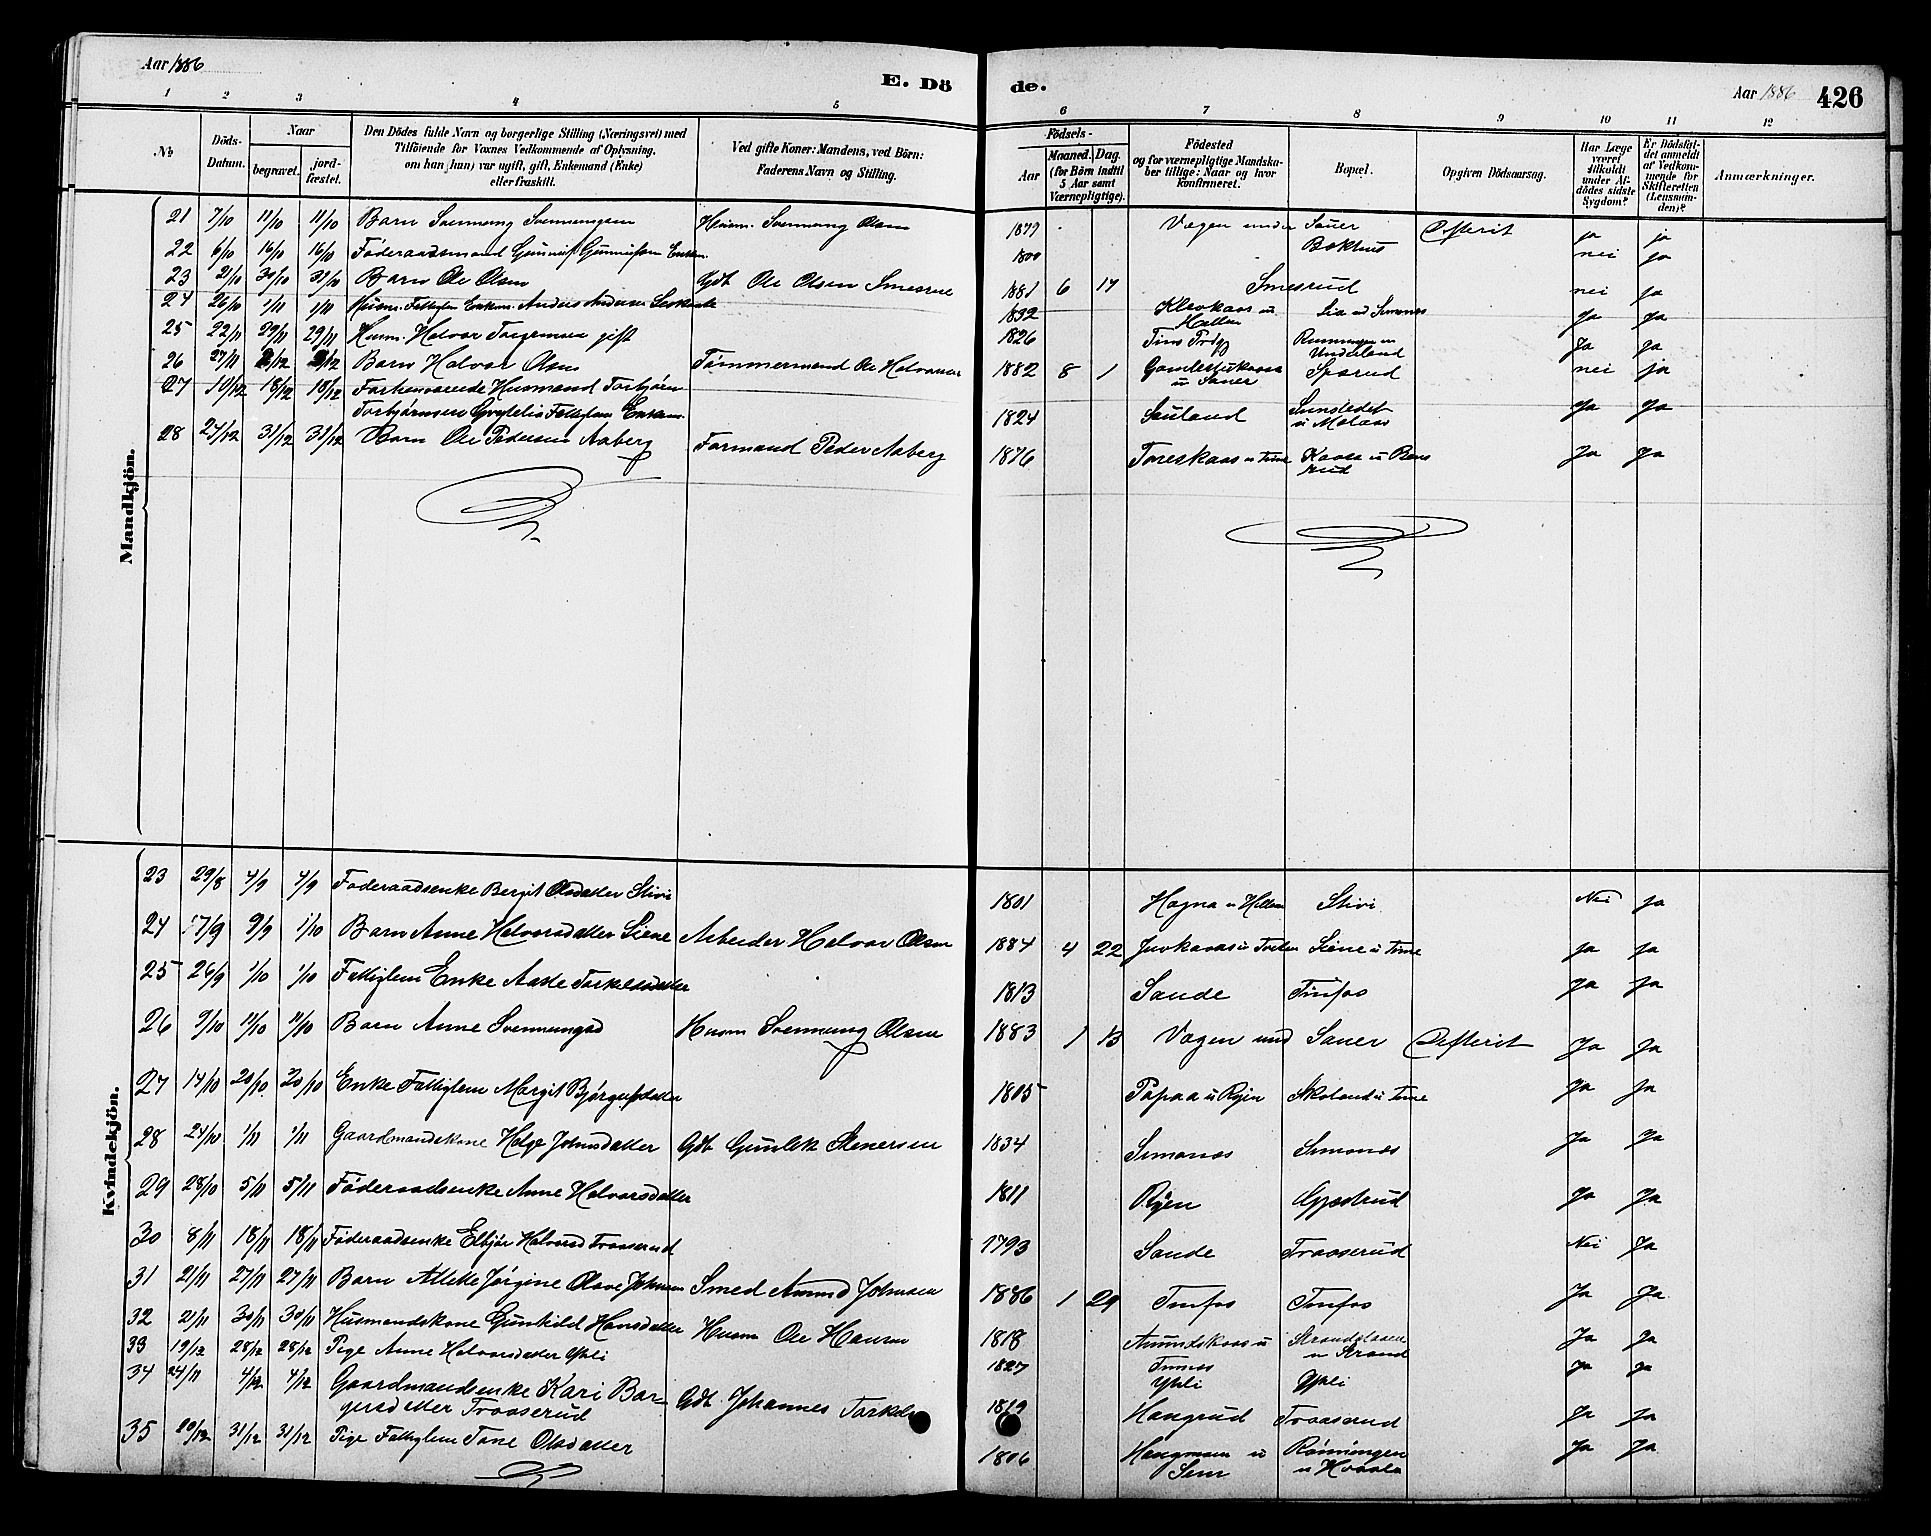 Aar 1886
E. Dö
de.
Aar 1886
426
1 2 3 4 5 6 7 8 9 10 11 12
No
Döds-Datum.
Naar
begravet.
jord-fæstet.
Den Dödes fulde Navn og borgerlige Stilling (Næringsvei) med
Tilföiende for Voxnes Vedkommende af Oplysning,
om han (hun) var ugift, gift, Enkemand (Enke)
eller fraskilt.
Ved gifte Koner: Mandens, ved Börn:
Faderens Navn og Stilling.
Födsels-
Aar
Maaned. Dag.
(for Börn indtil
5 Aar samt
Værnepligtige).
Födested
og for værnepligtige Mandska-
ber tillige: Naar og hvor
konfirmeret.
Bopæl.
Opgiven Dödsaarsag.
Har Læge
været
tilkaldt
under Af-
dødes sidste
Sygdom?
Er Dödsfal-
det anmeldt
af Vedkom-
mende for
Skifteretten
(Lensman-
den)?
Anmærkninger.
Mandkjön.
21 7/10 11/10 11/10 Barn Svennung Svennungsen Husm. Svennung Olsen 1879 Vagen under Sauer Difterit ja ja
22 6/10 16/10 16/10 Føderaadsmand Gunnuf Gunnufsen Enkem. 1800 Bakhus nei ja
23 21/10 30/10 31/10 Barn Ole Olsen Gdb Ole Olsen Smesrue 1881 6 17 Smesrud nei ja
24 26/10 1/11 1/11 Husm. Fattiglem Enkem. Anders Andersen 1832 Klevkaas u Ja Ja
25 22/11 29/11 29/11 Husm. Halvor Torgersen gift 1826 Tins Prdg Underland Ja Ja
26 27/11 2/12 2/12 Barn Halvor Olsen Tømmermand Ole Halvorsen 1882 8 1 u Sauer Sparud nei ja
27 10/12 18/12 18/12 Forhenværende Husmand Torbjørn
Torbjørnsen Grytelia Fattiglem Enkem. 1824 Sauland Ja Ja
28 24/12 31/12 31/12 Barn Ole Pedersen Aaberg Formand Peder Aaberg 1876 Toreskaas u Tinne Ja Ja
Kvindekjön.
23 29/8 4/9 4/9 Føderaadsenke Bergit Olsdatter Stivi 1801 Hogna u Hellem Stivi Nei ja
24 17/9 9/9 1/10 Barn Anne Halvorsdatter Siene Arbeider Halvor Olsen 1884 4 22 Siene u Tinne ja ja
25 26/9 1/10 1/10 Fattiglem Enke Aaste Torkelsdatter 1813 Sande Tinfos ja ja
26 9/10 11/10 11/10 Barn Anne Svennungsd Husm Svennung Olsen 1883 1 13 Vagen und Sauer Difterit Ja Ja
27 14/10 20/10 20/10 Enke Fattiglem Margit Bjørgulfsdatter 1805 Papaa u Ryen Skoland u Tinne Ja Ja
28 24/10 1/11 1/11 Gaardmandskone Helge Johnsdatter Gdb Gunlek Stenersen 1834 Semonæs Semonæs Ja Ja
29 28/10 5/11 5/11 Føderaadsenke Anne Halvorsdatter 1811 Ryen Opsterud Ja Ja
30 8/11 18/11 18/11 Føderaadsenke Elbjør Halvorsd Traaserud 1793 Sande Traaserud Nei Ja
31 21/11 27/11 27/11 Barn Jørgine Olave Johnsen Smed Amund Johnsen 1886 1 29 Tinfos Tinfos Ja Ja
32 21/11 30/11 30/11 Husmandskone Gunhild Hansdatter Husm Ole Hansen 1818 Amundskaas u u Strand Ja Ja
33 19/12 28/12 28/12 Pige Anne Halvorsdatter Ypli 1827 Ypli Ypli Ja Ja
34 24/11 4/12 4/12 Gaardmandsenke Kari Bor-
gersdatter Traaserud Gdb Johannes 1819 Haugrud Traaserud Ja Ja
35 20/12 31/12 31/12 Pige Fattiglem Tone Olsdatter 1806 Haugmoen u Sem Rønningen u Ja Ja